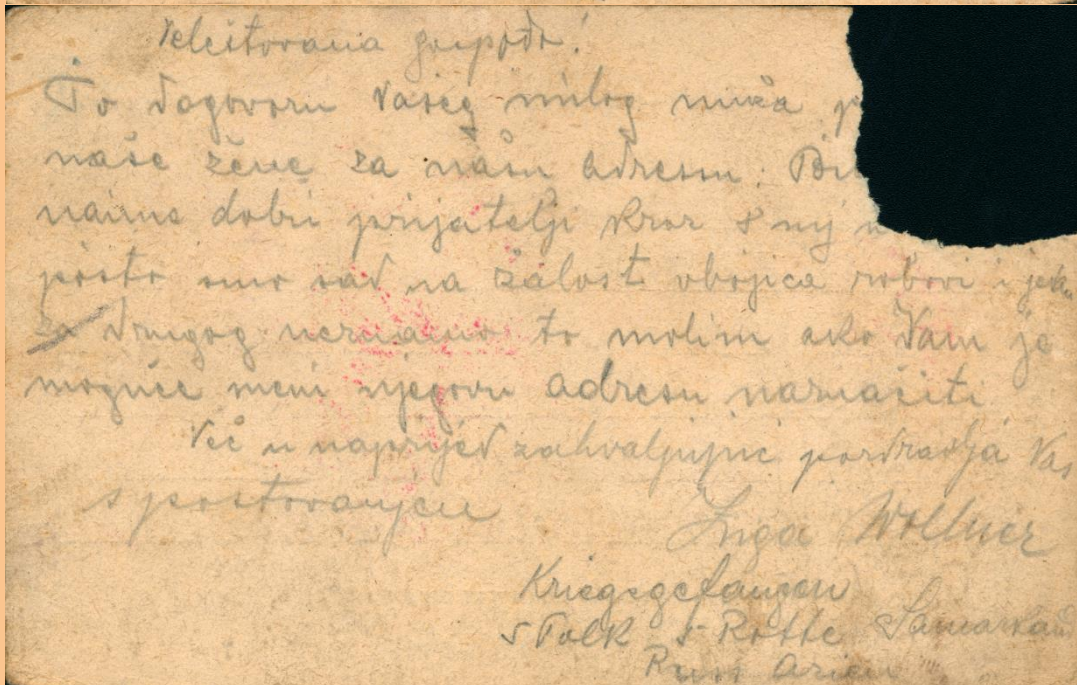 Velecitovana gospođo!
Po dogovoru Vašeg milog muža p
naše žene za našu adresu. Bil
naime dobri prijatelji kroz
pošto smo sad na žalost obojica robovi i jedn
za drugog neznamo to molim ako Vam je
moguće meni njegovu adresu naznačiti
Već u naprijed zahvaljujuć pozdravlja Vas
s poštovanjem
Wollner
Kriegsgefangen
5 Polk 5 Rotte Samarkand
Russ Asien